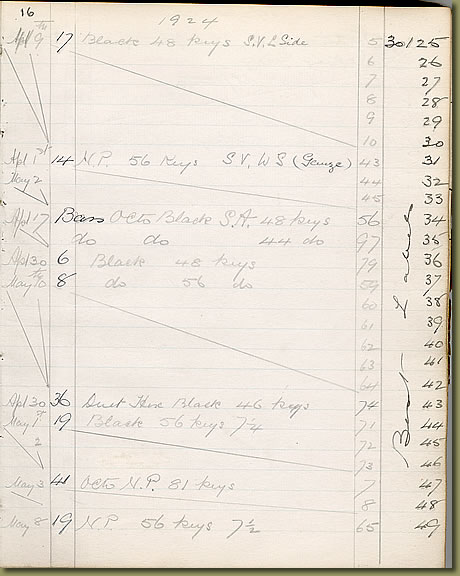 16
1924
Apl 9th 17 Black 48 keys S.V. L Side 5 30125
6 26
7 27
8 28
9 29
10 30
Apl 1st 14 N.P. 56 Keys S.V. W S (Gauze) 43 31
May 2 44 32
45 33
Apl 17 Bass Octo Black S.A. 48 keys 56 34
do do 44 do 97 35
Apl 30 6 Black 48 keys 79 36
May 10th 8 do 56 do 59 37
60 38
61 39
62 40
63 41
64 42
Apl 30 36 Duet Hex Black 46 keys 74 43
May 1st 19 Black 56 keys 7¼ 71 44
2 72 45
73 46
May 3 41 Octo N.P. 81 keys 7 47
8 48
May 8 19 N.P. 56 keys 7½ 65 49
Best Labels